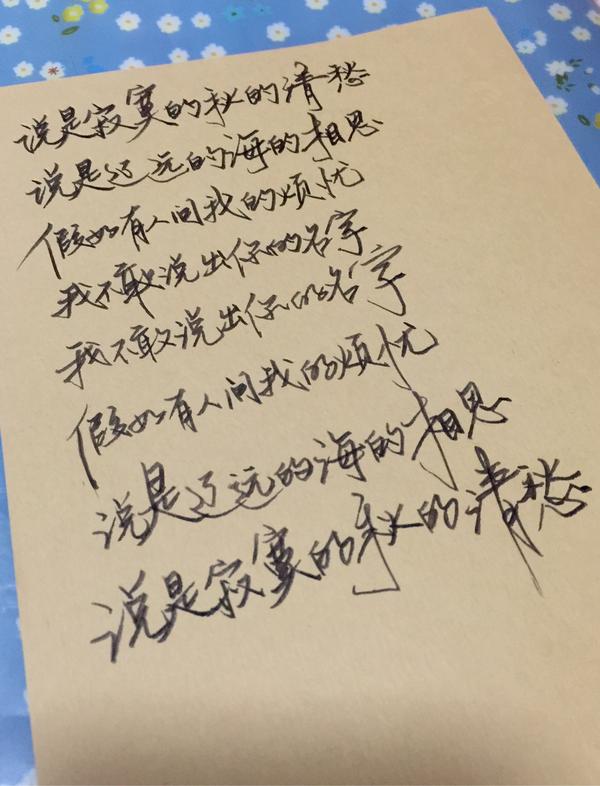 说是寂寞的秋的清愁
说是辽远的海的相思
假如有人问我的烦忧
我不敢说出你的名字
我不敢说出你的名字
假如有人问我的烦忧
说是辽远的海的相思
说是寂寞的秋的清愁